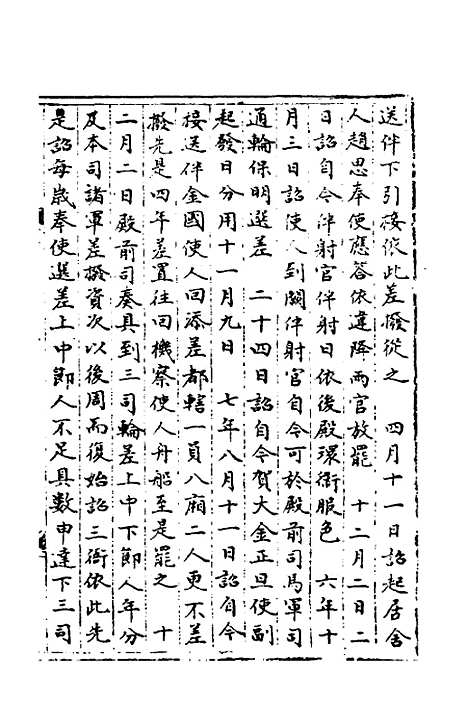 送伴下引接依此差撥從之　四月十一日詔起居舍
人趙思奉使應答依違降兩官放罷　十二月二日二
日詔自今伴射官伴射日依後殿環衛服色　六年十
月三日詔使人到闕伴射官自今可於殿前司馬軍司
通輪保明選差　二十四日詔自今賀大金正旦使副
起發日分用十一月九日　七年八月十一日詔自今
接送伴金國使人回添差都轄一員八廂二人更不差
撥先是四年差置往回機察使人舟船至是罷之　十
二月二日殿前司奏具到三司輪差上中下節人年分
及本司諸軍差撥資次以後周而復始詔三衙依此先
是詔每歲奉使選差上中節人不足具數申達下三司